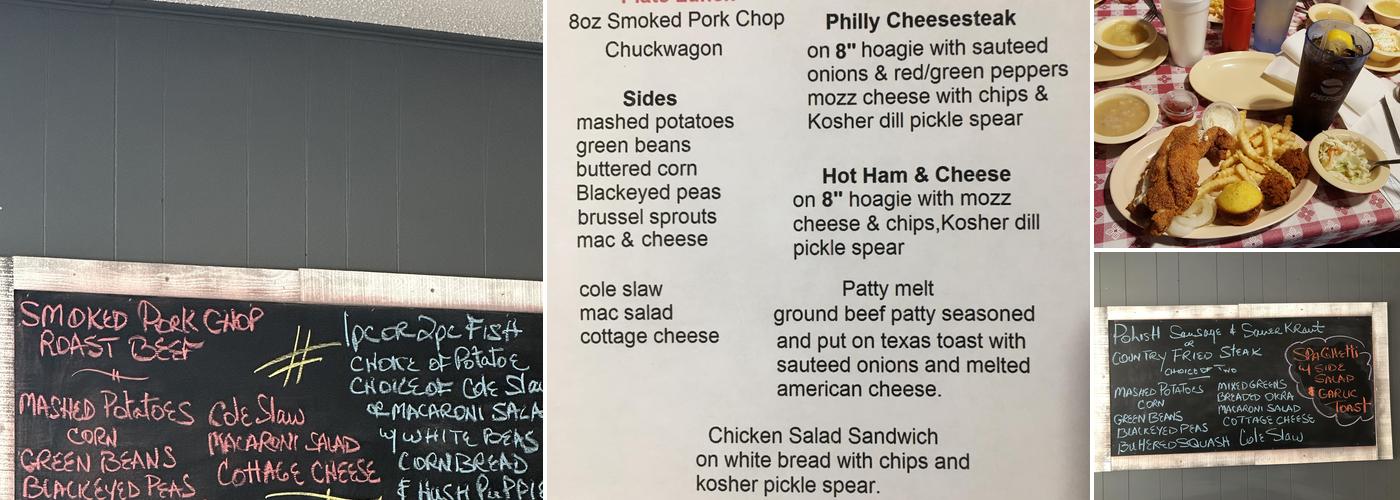 SMOKED PORK CHOP
ROAST BEEF
MASHED POTATOES
CORN
GREEN BEANS
BLACKEYED PEAS
Cole Slaw
MACARONI SALAD
COTTAGE CHEESE
1pc OR 2pc FISH
CHOICE OF POTATOE
CHOICE OF Cole Slaw
OR MACARONI SALA
w/ WHITE BEANS
CORNBREAD
& HUSH PUPPIE
8oz Smoked Pork Chop
Chuckwagon
Sides
mashed potatoes
green beans
buttered corn
Blackeyed peas
brussel sprouts
mac & cheese
cole slaw
mac salad
cottage cheese
Philly Cheesesteak
on 8" hoagie with sauteed
onions & red/green peppers
mozz cheese with chips &
Kosher dill pickle spear
Hot Ham & Cheese
on 8" hoagie with mozz
cheese & chips,Kosher dill
pickle spear
Patty melt
ground beef patty seasoned
and put on texas toast with
sauteed onions and melted
american cheese.
Chicken Salad Sandwich
on white bread with chips and
kosher pickle spear.
POLISH Sausage & Sauer Kraut
OR
COUNTRY FRIED STEAK
CHOICE OF TWO
MASHED POTATOES
CORN
GREEN BEANS
BLACKEYED PEAS
BUTTERED SQUASH
MIXED GREENS
BREADED OKRA
MACARONI SALAD
COTTAGE CHEESE
Cole Slaw
SPAGHETTI
w/ SIDE
SALAD
& GARLIC
TOAST